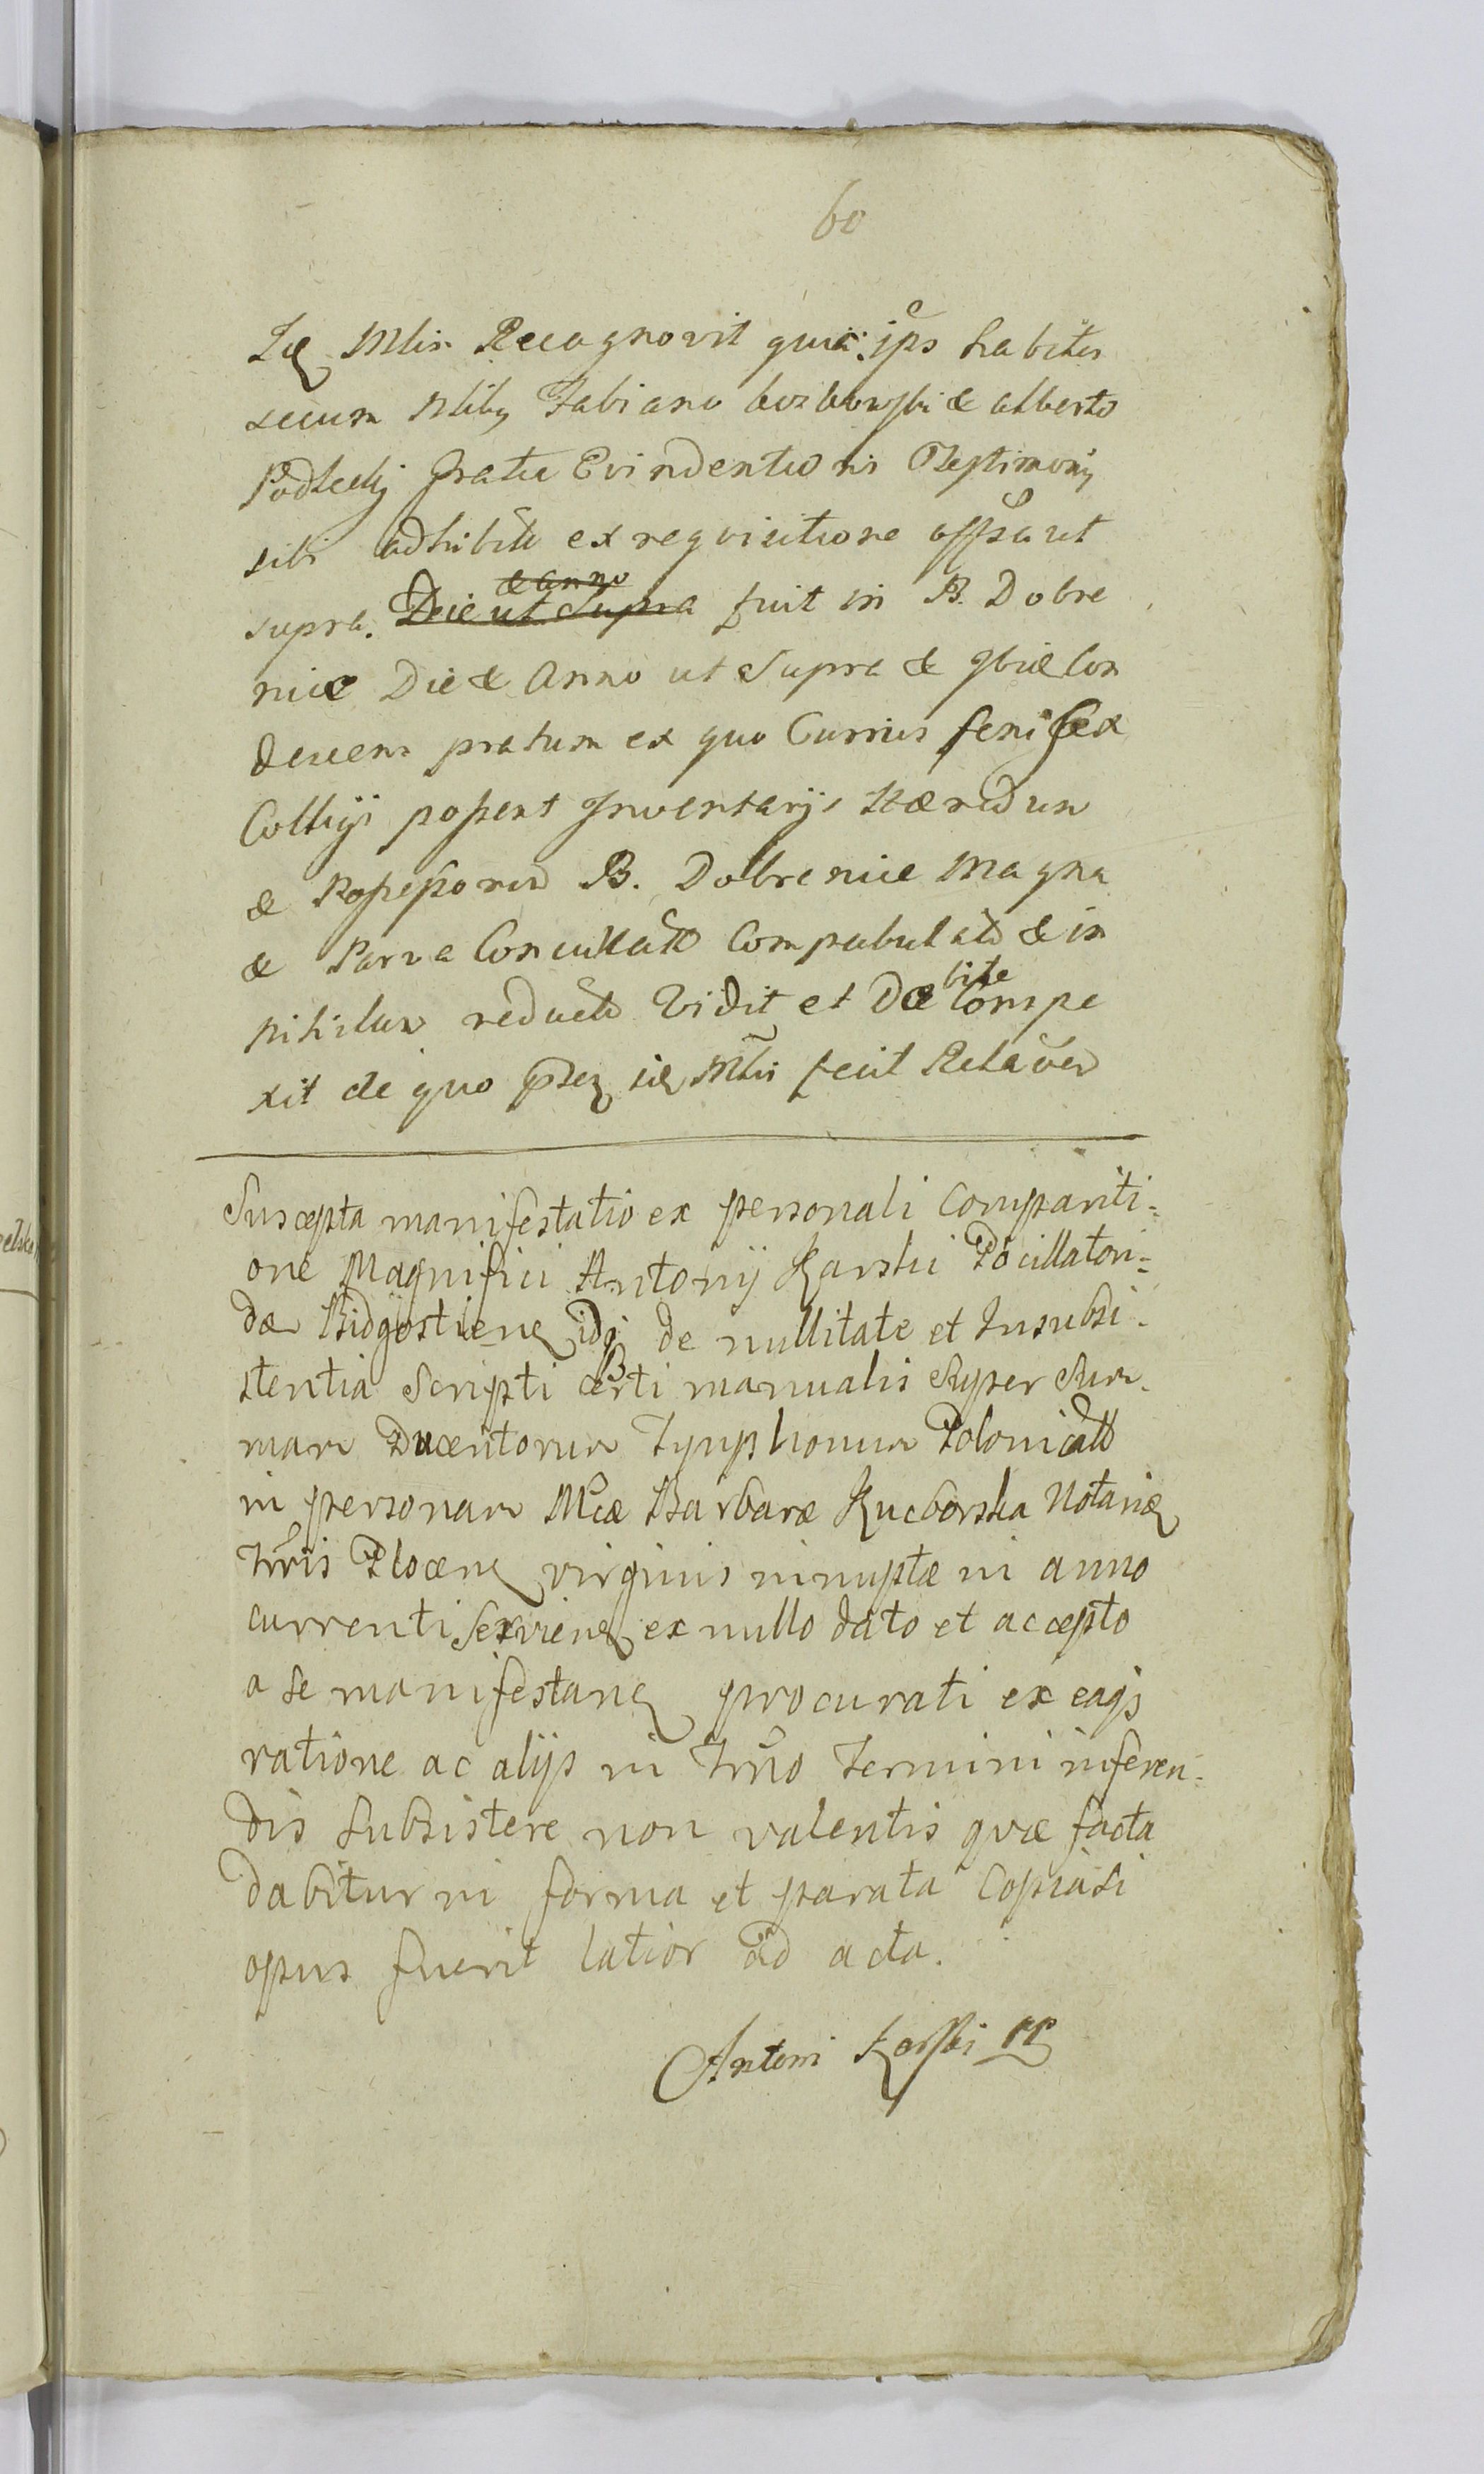 60
Mlis Recognovit quia ipse habitis
secum Nlibg Fabiano & alberto
Podlecki Gratia Evindentionis Testimonij
sibi adhibit ex requisitione offsa ut
supra. Die & anno ut Supra fuit in B. Dobre
nice Die & Anno ut Supra & ibid Con
descens pratum ex quo Currus feni sex
Colligi possent Inventarijs Hæredum
& Possessorum B. Dobrenice Magna
& Parva Conculcatt Compabulatt & in
nihilum reductt Vidit et Debite Conspe
xit de quo idē Mlis fecit Relāōem
Suscepta manifestatio ex personali Compariti=
one Magnifici Antonij Karski Pocillatori=
dæ Bidgostiene idq de nullitate et Insubsi-
stentia Scripti certi manualis Super Sum-
mam Ducentorum Tynphonum Polonicall
in personam Mcæ Barbaræ Kucborska Notariæ
Trris Plocene virginis innuptæ in anno
currenti Serviene ex nullo dato et accepto
a se manifestane procurati ex eaqs
ratione ac alijs in Trno Termini inferen=
dis Subsistere non valentis quæ facta
dabitur in forma et parata Copia si
opus fuerit latior ad acta.
Antoni Karski mp